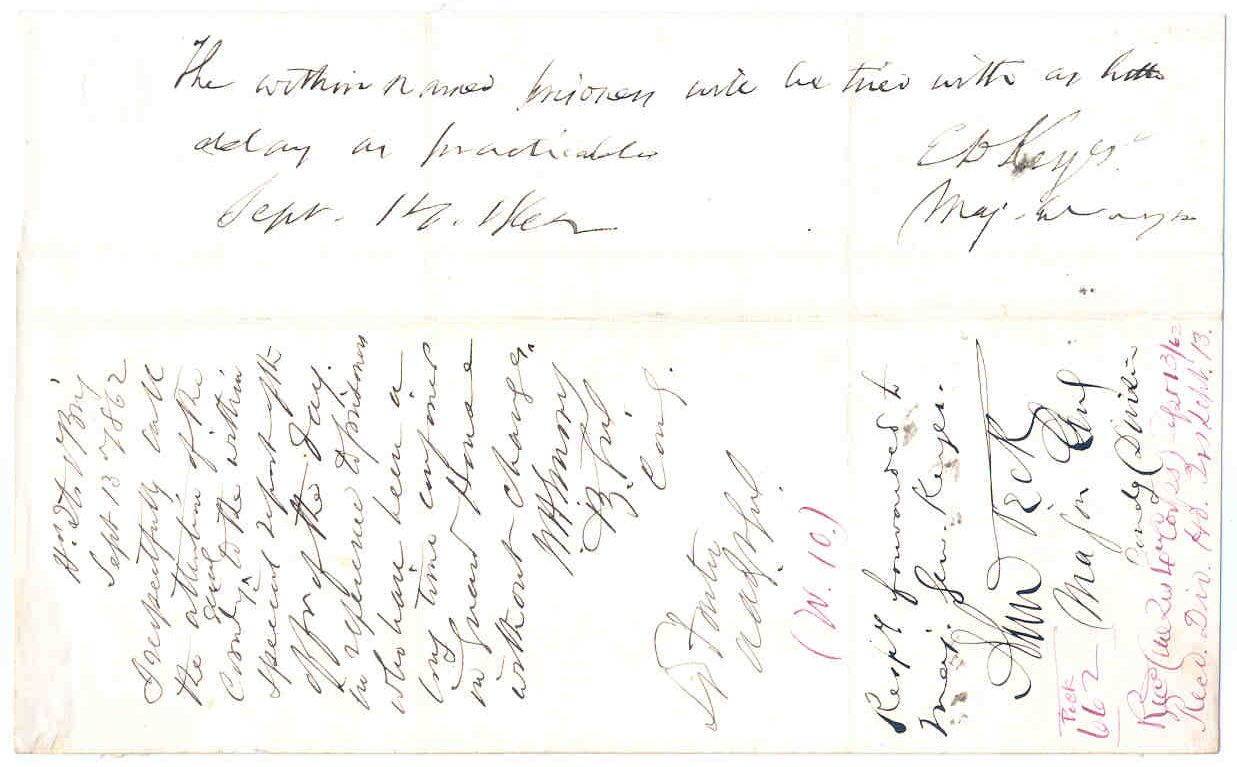 The within named prisoners will be tried with as little
delay as practicable
E D Keyes
Sept. 14. 1862
Maj. Genl
Hd Qrs Brig
Sept 13 1862
I respectfully call
the attention of the
Genl
Comdg to the within
special report of the
offr of the day.
in reference to prisoners
who have been a
long time confined
in Guard House
without charges.
W H Emory
B. Genl
Comg.
(W. 10.)
Respy forwarded to
Maj. Gen Keyes.
John J Peck
Major Genl
Comdg Division
Peck
662
Recd Sept 13/62
Recd. Div. Hd. Qrs Sept. 13.